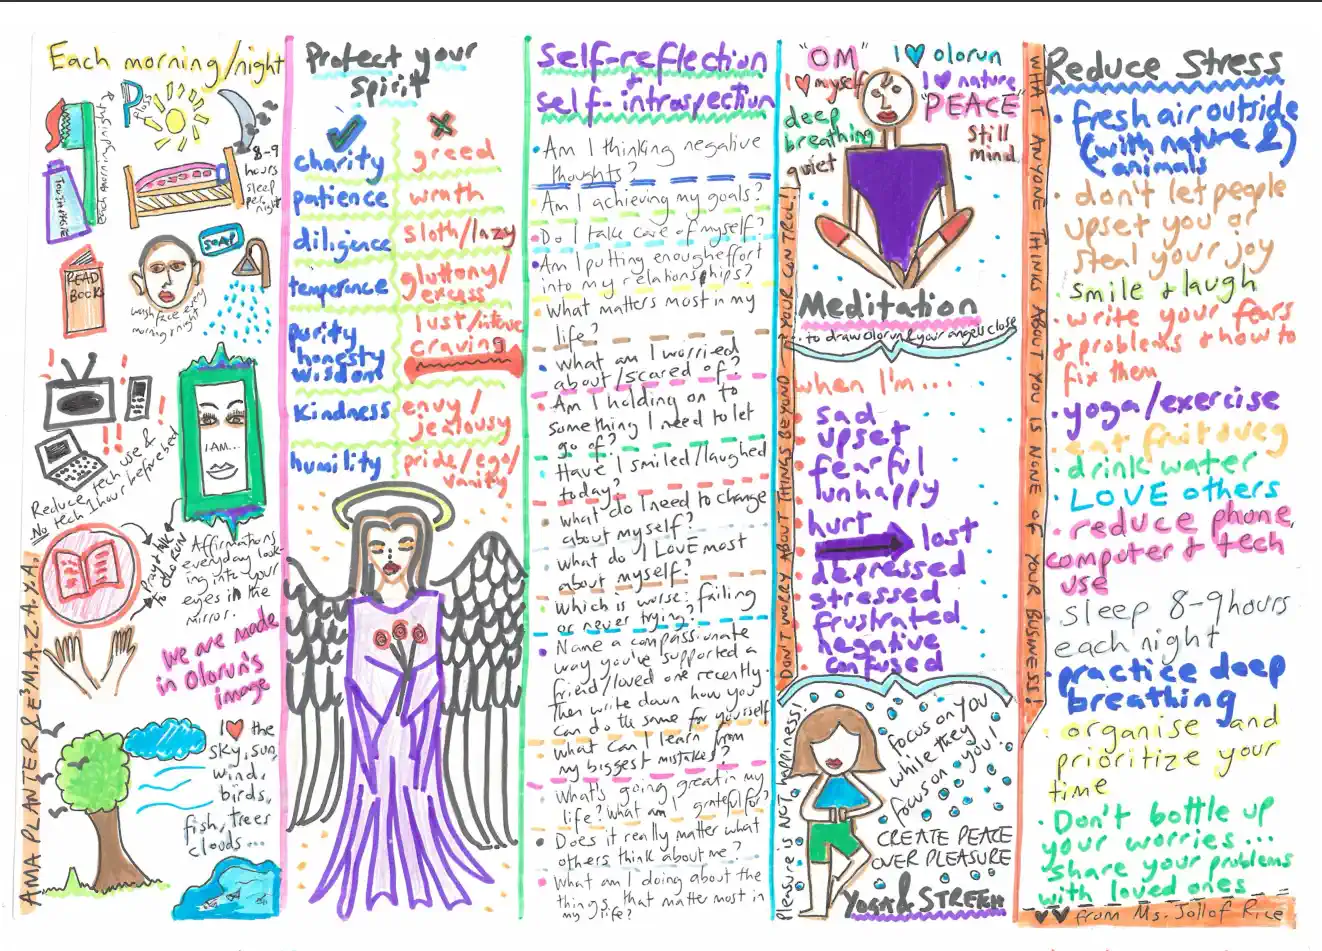 Each morning/night
Floss
each morning & night
TOOTHPASTE
8-9
hours
sleep
per
night
READ
BOOKS
SOAP
wash face every
morning & night
I AM...
!!
Reduce tech use &
No tech 1 hour before bed
pray & talk
to OLORUN
Affirmations
everyday look-
ing into your
eyes in the
mirror.
We are made
in Olorun's
image
I ❤ the
sky, sun,
wind,
birds,
fish, trees
clouds...
AMA PLANTER & E³.M.A.Z.A.Y.A.
Protect your
Spirit
✓ ✗
charity greed
patience wrath
diligence sloth/lazy
temperance gluttony/
excess
purity lust/intense
honesty craving
wisdom
Kindness envy/
jealousy
humility pride/ego/
vanity
Self-reflection
+
self-introspection
• Am I thinking negative
thoughts?
• Am I achieving my goals?
• Do I take care of myself?
• Am I putting enough effort
into my relationships?
• What matters most in my
life?
• What am I worried
about/scared of?
• Am I holding on to
something I need to let
go of?
• Have I smiled/laughed
today?
• What do I need to change
about myself?
• What do I LOVE most
about myself?
• Which is worse: failing
or never trying?
• Name a compassionate
way you've supported a
friend/loved one recently.
Then write down how you
can do the same for yourself
• What can I learn from
my biggest mistakes?
• What's going great in my
life? What am I grateful for?
• Does it really matter what
others think about me?
• What am I doing about the
things that matter most in
my life?
"OM"
I ❤ olorun
I ❤ myself
I ❤ nature
"PEACE"
deep
breathing
quiet
Still
mind
Meditation
...to draw olorun & your angels close
when I'm...
sad
upset
fearful
unhappy
hurt
lost
depressed
stressed
frustrated
negative
confused
DON'T WORRY ABOUT THINGS BEYOND YOUR CONTROL!
Pleasure is NOT happiness!
focus on YOU
while they
focus on you!
CREATE PEACE
OVER PLEASURE
YOGA & STRETCH
WHAT ANYONE THINKS ABOUT YOU IS NONE OF YOUR BUSINESS!
Reduce Stress
• fresh air outside
(with nature &
animals)
• don't let people
upset you or
steal your joy
• smile & laugh
• write your fears
& problems & how to
fix them
• yoga/exercise
• eat fruit & veg
• drink water
• LOVE others
• reduce phone,
computer & tech
use
• sleep 8-9 hours
each night
• practice deep
breathing
• organise and
prioritize your
time
• Don't bottle up
your worries...
share your problems
with loved ones
❤❤ from Ms. Jollof Rice